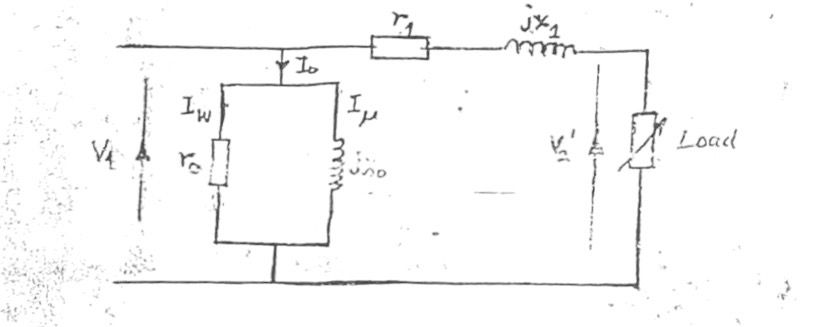 r₁ jx₁
I₀
I_w I_μ
V₁ r₀ jx₀ V₂' Load